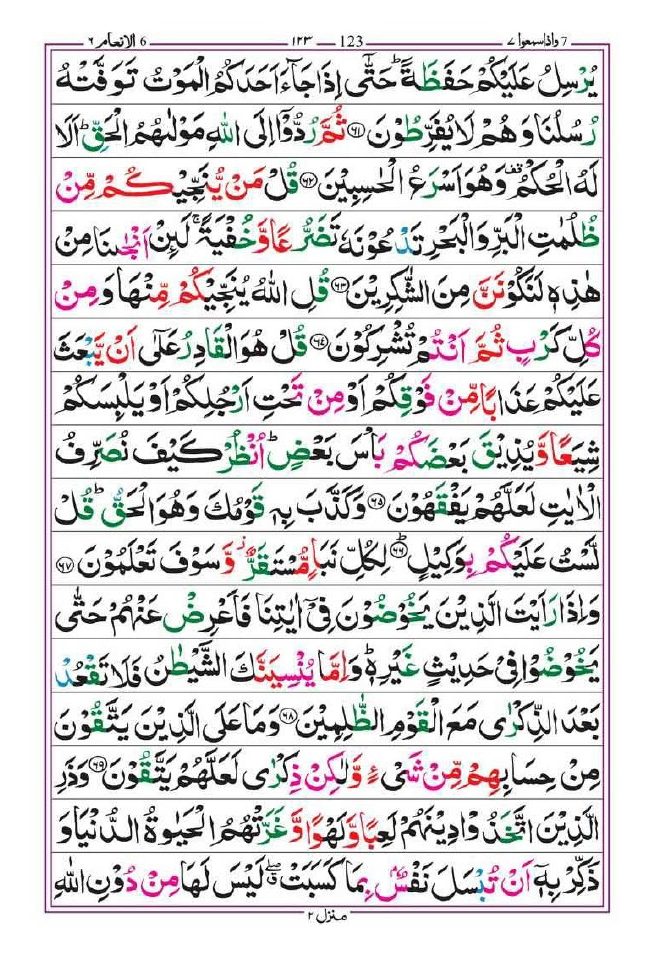 ٧ واذاسمعوا 7 123 ١٢٣ 6 الانعام ٦
يُرْسِلُ عَلَيْكُمْ حَفَظَةً ؕ حَتّٰۤى اِذَا جَآءَ اَحَدَكُمُ الْمَوْتُ تَوَفَّتْهُ
رُسُلُنَا وَهُمْ لَا يُفَرِّطُوْنَ ﴿۶۱﴾ ثُمَّ رُدُّوْۤا اِلَى اللّٰهِ مَوْلٰىهُمُ الْحَقِّ ؕ اَلَا
لَهُ الْحُكْمُ ۟ وَهُوَ اَسْرَعُ الْحٰسِبِيْنَ ﴿۶۲﴾ قُلْ مَنْ يُّنَجِّيْكُمْ مِّنْ
ظُلُمٰتِ الْبَرِّ وَالْبَحْرِ تَدْعُوْنَهٗ تَضَرُّعًا وَّخُفْيَةً ۚ لَئِنْ اَنْجٰىنَا مِنْ
هٰذِهٖ لَنَكُوْنَنَّ مِنَ الشّٰكِرِيْنَ ﴿۶۳﴾ قُلِ اللّٰهُ يُنَجِّيْكُمْ مِّنْهَا وَمِنْ
كُلِّ كَرْبٍ ثُمَّ اَنْتُمْ تُشْرِكُوْنَ ﴿۶۴﴾ قُلْ هُوَ الْقَادِرُ عَلٰۤى اَنْ يَّبْعَثَ
عَلَيْكُمْ عَذَابًا مِّنْ فَوْقِكُمْ اَوْ مِنْ تَحْتِ اَرْجُلِكُمْ اَوْ يَلْبِسَكُمْ
شِيَعًا وَّيُذِيْقَ بَعْضَكُمْ بَاْسَ بَعْضٍ ؕ اُنْظُرْ كَيْفَ نُصَرِّفُ
الْاٰيٰتِ لَعَلَّهُمْ يَفْقَهُوْنَ ﴿۶۵﴾ وَكَذَّبَ بِهٖ قَوْمُكَ وَهُوَ الْحَقُّ ؕ قُلْ
لَّسْتُ عَلَيْكُمْ بِوَكِيْلٍ ؕ ﴿۶۶﴾ لِكُلِّ نَبَاٍ مُّسْتَقَرٌّ ۫ وَّسَوْفَ تَعْلَمُوْنَ ﴿۶۷﴾
وَاِذَا رَاَيْتَ الَّذِيْنَ يَخُوْضُوْنَ فِيْۤ اٰيٰتِنَا فَاَعْرِضْ عَنْهُمْ حَتّٰى
يَخُوْضُوْا فِيْ حَدِيْثٍ غَيْرِهٖ ؕ وَاِمَّا يُنْسِيَنَّكَ الشَّيْطٰنُ فَلَا تَقْعُدْ
بَعْدَ الذِّكْرٰى مَعَ الْقَوْمِ الظّٰلِمِيْنَ ﴿۶۸﴾ وَمَا عَلَى الَّذِيْنَ يَتَّقُوْنَ
مِنْ حِسَابِهِمْ مِّنْ شَيْءٍ وَّلٰكِنْ ذِكْرٰى لَعَلَّهُمْ يَتَّقُوْنَ ﴿۶۹﴾ وَذَرِ
الَّذِيْنَ اتَّخَذُوْا دِيْنَهُمْ لَعِبًا وَّلَهْوًا وَّغَرَّتْهُمُ الْحَيٰوةُ الدُّنْيَا وَ
ذَكِّرْ بِهٖۤ اَنْ تُبْسَلَ نَفْسٌۢ بِمَا كَسَبَتْ ۖ لَيْسَ لَهَا مِنْ دُوْنِ اللّٰهِ
منزل ٢